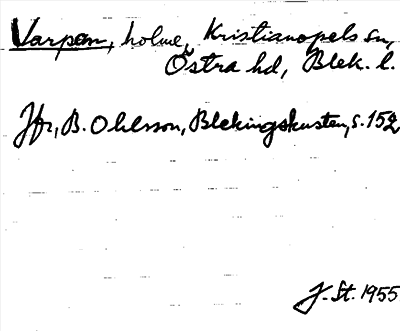 Varpen, holme, Kristianopels sn,
Östra hd, Blek. l.
Jfr, B. Ohlsson, Blekingskusten, s. 152
J. St. 1955